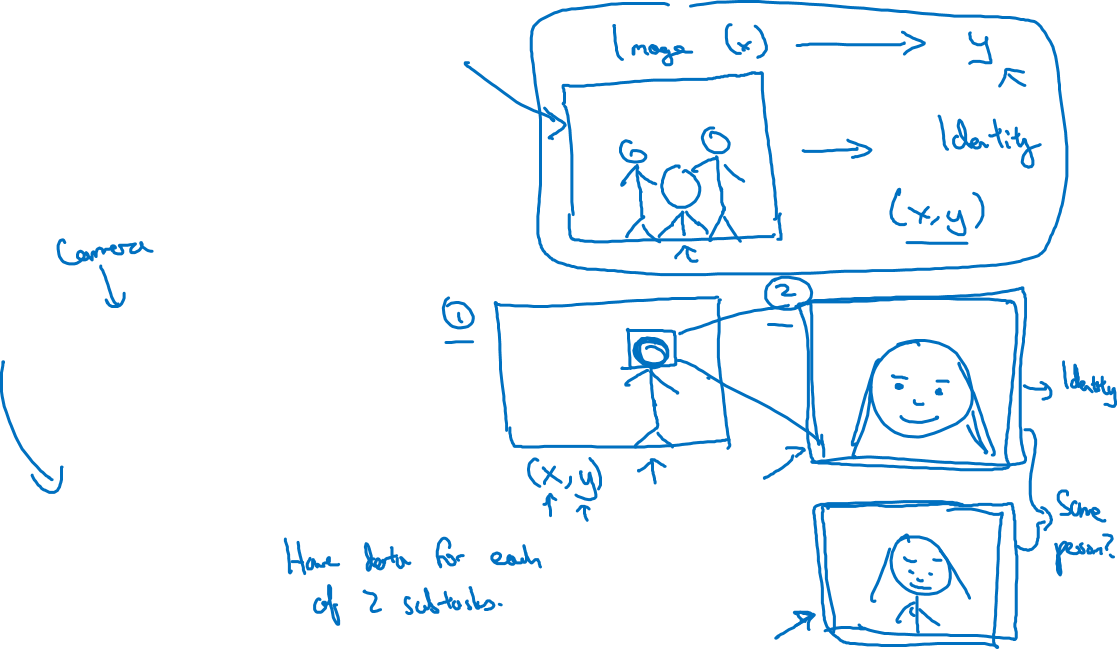 Image (x) → y
Identity
(x, y)
Camera
1
2
Identity
(x, y)
Same
person?
Have data for each
of 2 subtasks.